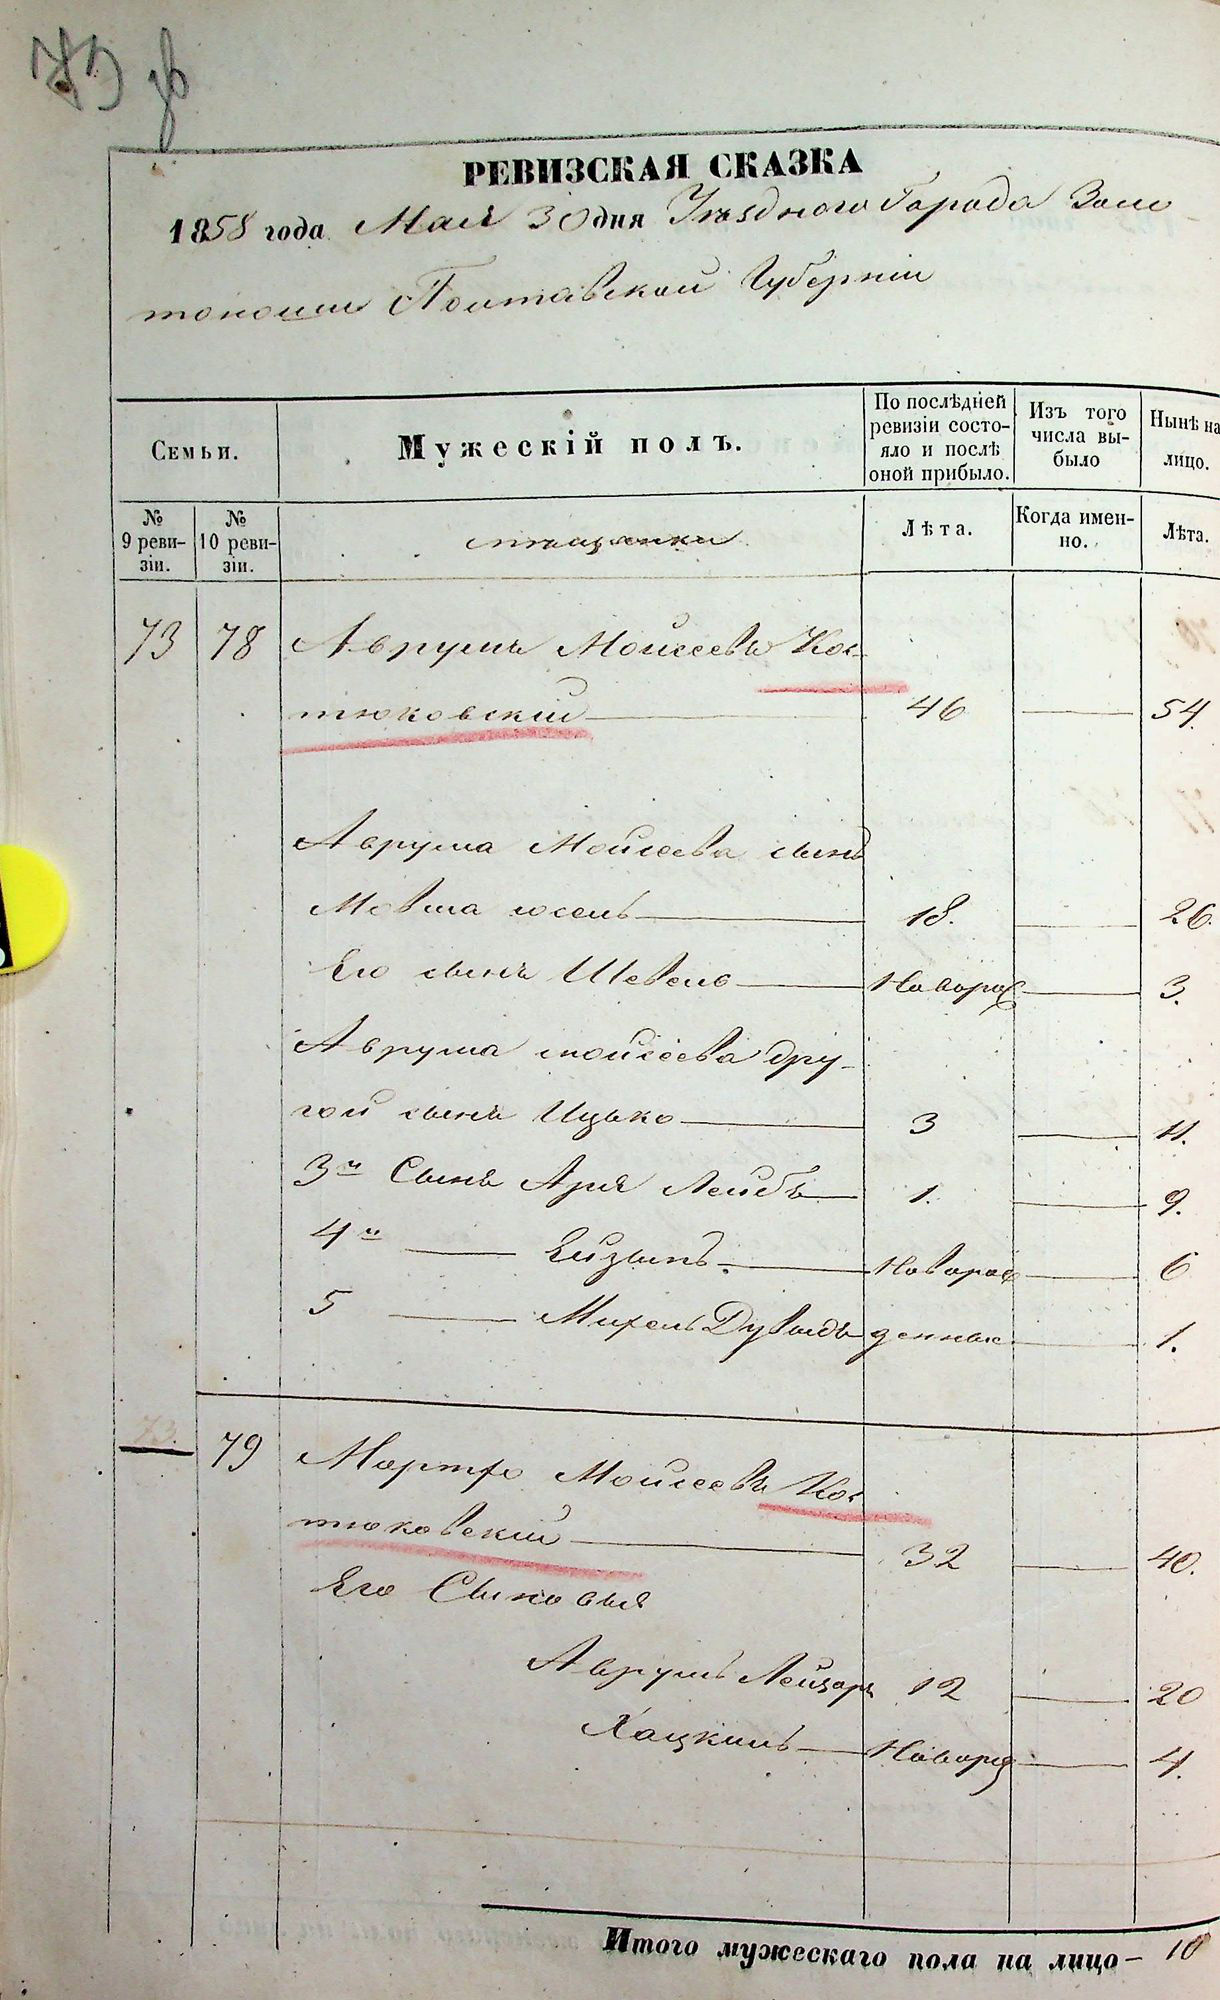 РЕВИЗСКАЯ СКАЗКА
1858 года Мая 30 дня Уѣзднаго Города Золо
тоноши Полтавской Губерніи
Семьи.
Мужескій полъ.
По послѣдней ревизіи состо-
яло и послѣ оной прибыло.
Изъ того числа вы-
было
Нынѣ на лицо.
№ 9 реви-
зіи.
№ 10 реви-
зіи.
Лѣта.
Когда имен-
но.
Лѣта.
73 78 Аврумъ Моисеевъ Кос-
тюковскій 46 54.
Аврума Моисеева сынъ
Мовша юсель 18. 26.
Его сынъ Шевель Новорож 3.
Аврума моисеева дру-
гой сынъ Ицько 3 11.
3й Сынъ Арія Лейбъ 1. 9.
4й Новорож 6
5 Михель Дувидъ денные 1.
73. 79 Мортхо Моисеевъ Кос
тюковскій 32 40.
Его Сыновья
Аврумъ Лейзоръ 12 20
Хацкиль Новорож 4.
Итого мужескаго пола на лицо – 10